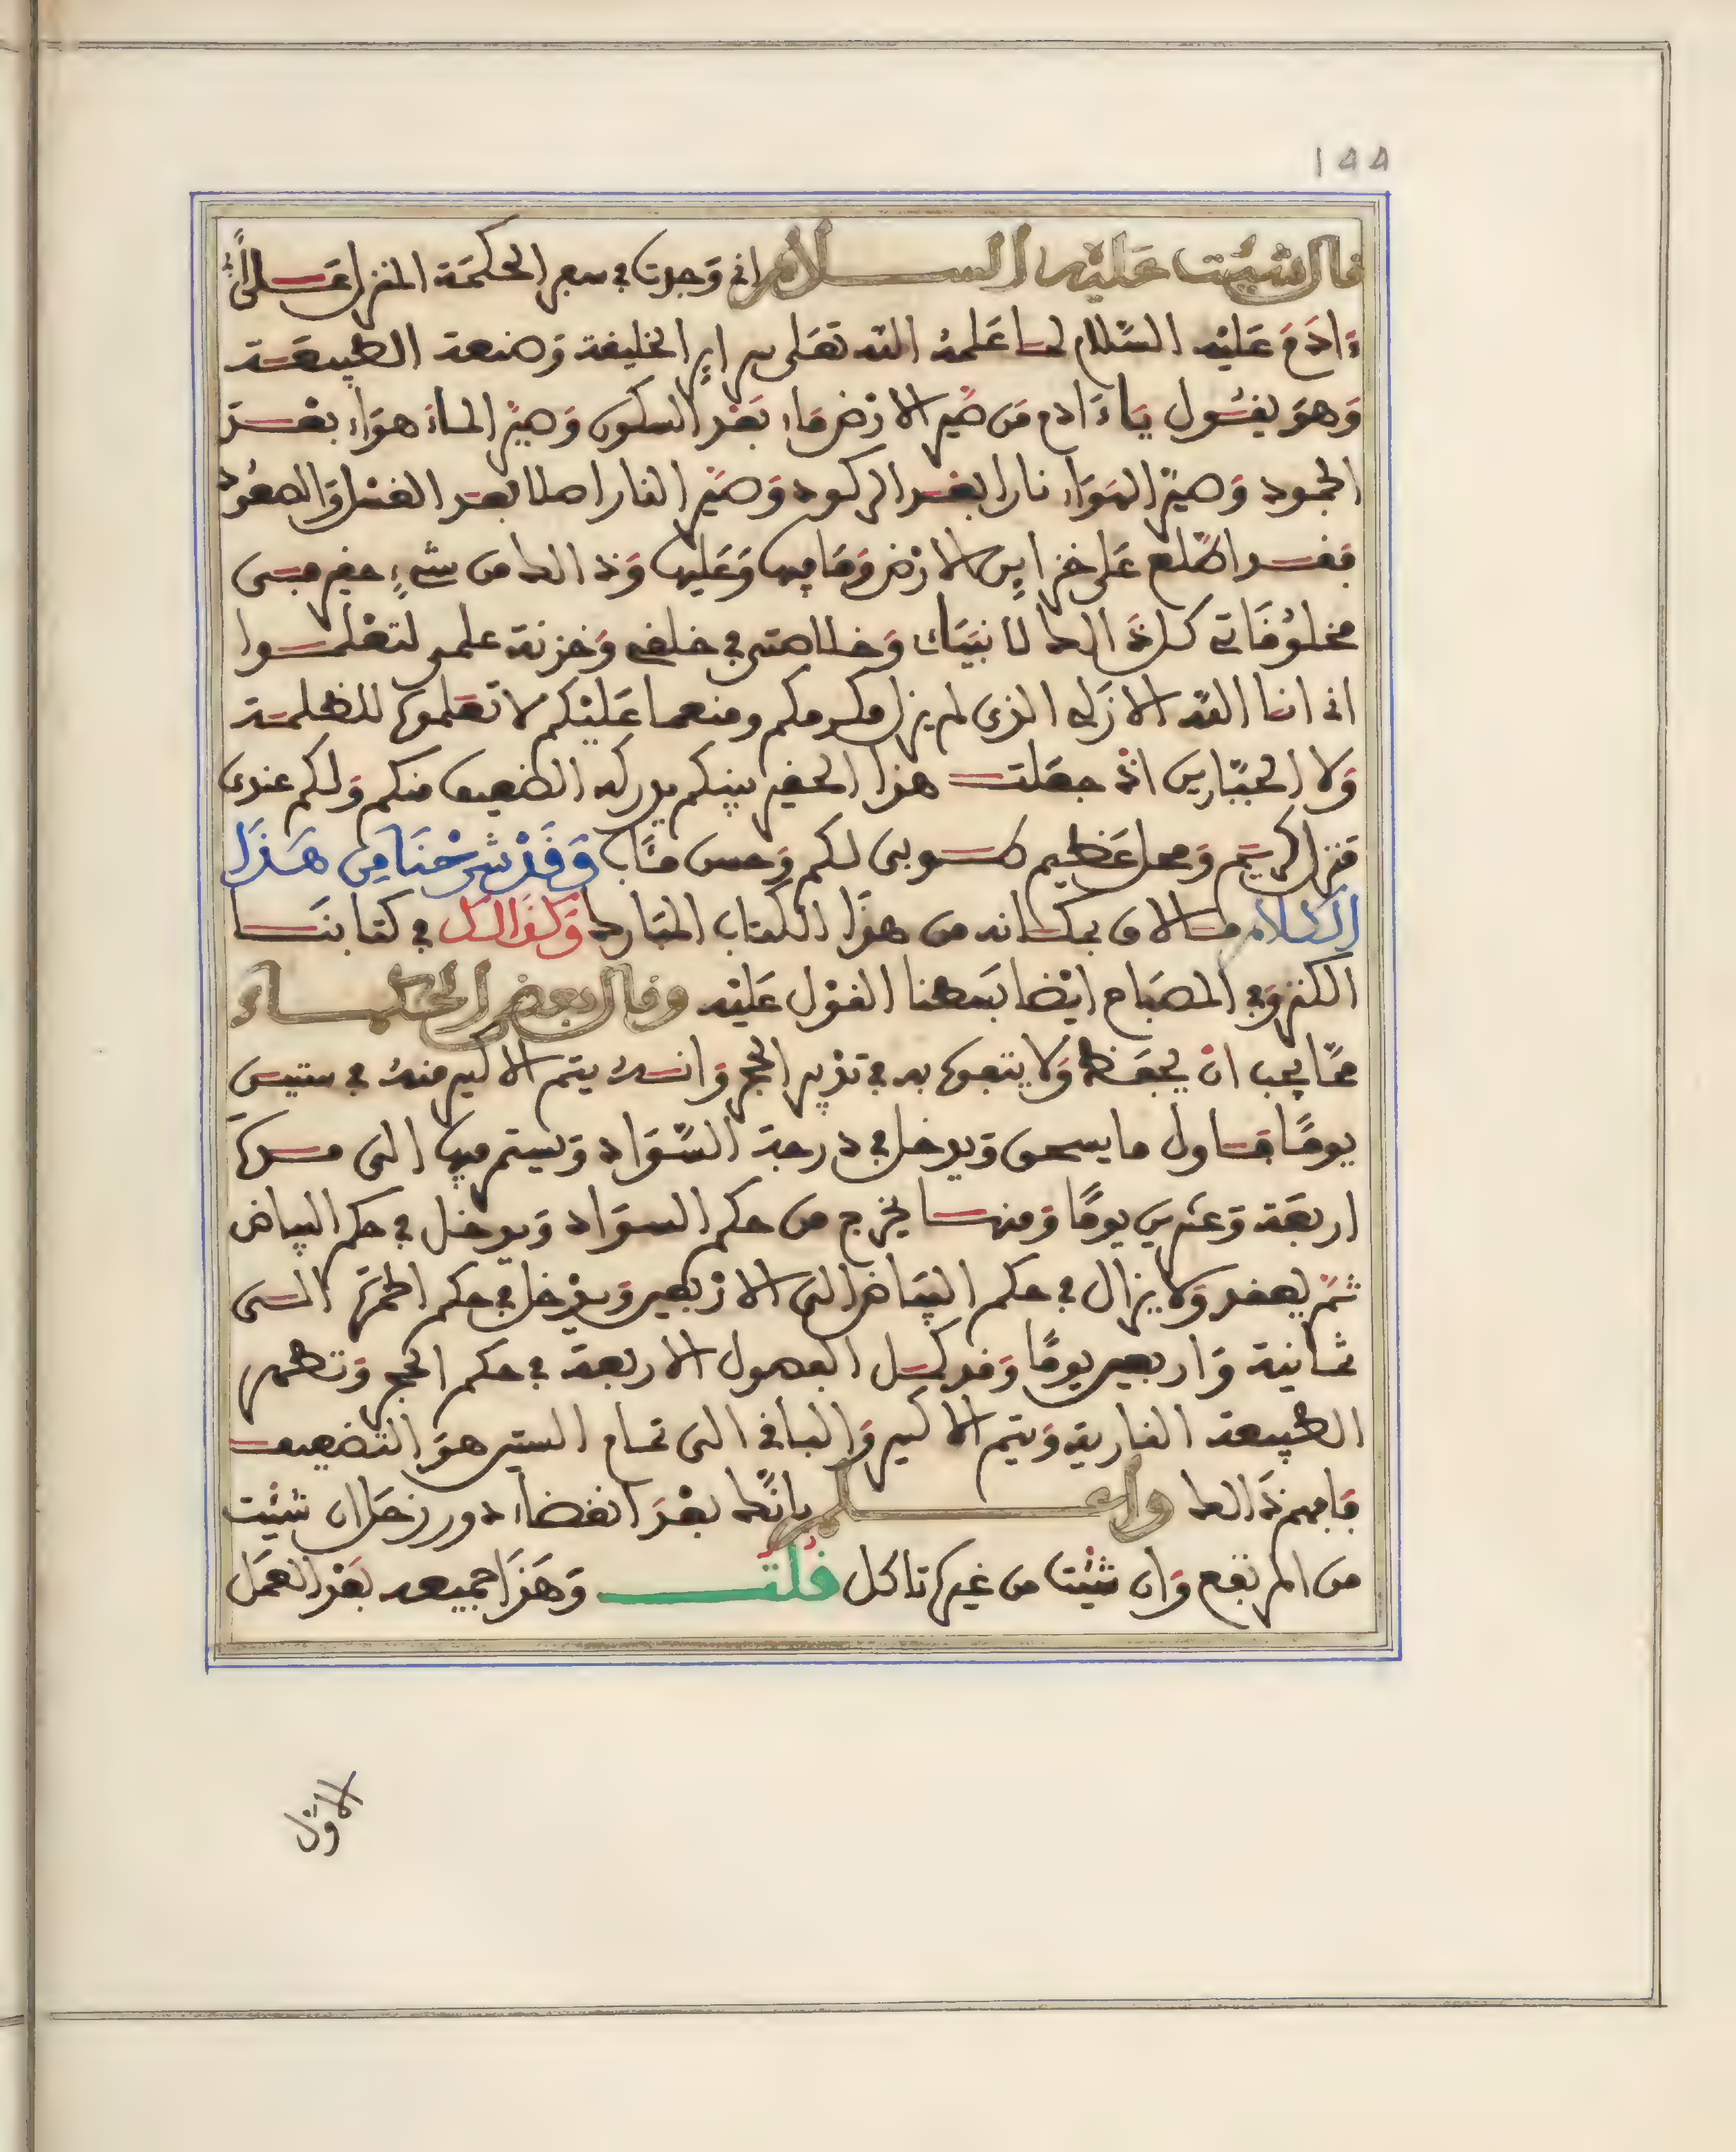 ١٥٥
قال شئت عليه السلام اني وجدت في سفر الحكمة المنزل على ابي
ءادم عليه السلام لما علمه الله تعلى سراير الخليفة وصنعة الطبيعة
وهو يقول ياءادم من صير الارض ماء بعد السكون وصير الماء هواء بعد
الجمود وصير الهواء نارا بعد الركود وصير النار اصلا بعد والصعود
فقد اطلع على خزاين الارض وما فيها وعليها وذالك من شيء حقير من
مخلوقاتي كل ذالك لانبياك وخلاصتي في خلقي وخزنة علمي لتعلموا
اني انا الله الازلي الذي لم يزل مكرمكم ومنعما عليكم لا تعلموها للظلمة
ولا الجبارين اذ جعلت هذا الحقير بينكم يدركه الضعيف منكم ولكم عندي
منزل كريم ومحل عظيم طوبى لكم وحسن مئاب وقد شرحنا من هذا
الكلام ما لاق بمكانه من هذا الكتاب المبارك وكذالك في كتابنا
الكنز وفي المصباح ايضا بسطنا القول عليه وقال بعض الحكماء
مما يجب ان يحفظ ولا يتفوه به في تدبير الحجر وانه يتم الاكسير منه في ستين
يوما فاول ما يسحق ويدخل في درجة السواد ويستمر فيها الى مدة
اربعة وعشرين يوما ومنها يخرج من حكم السواد ويدخل في حكم البياض
ثم يصفر ولا يزال في حكم البياض الى الاربعين ويدخل في حكم الحمرة الى
ثمانية واربعين يوما وقد كمل الفصول الاربعة في حكم الحجر وتظهر
الطبيعة النارية ويتم الاكسير والباقي الى تمام الستين هو التضعيف
فافهم ذالك واعلم بانك بعد انقضاء دور زحل ان شئت
من المرتفع وان شئت من غيره تاكل قلت وهذا جميعه بعد العمل
الاول